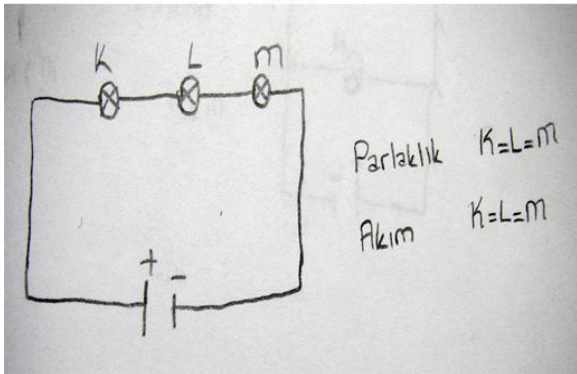 K L m
Parlaklık K=L=m
Akım K=L=m
+ -